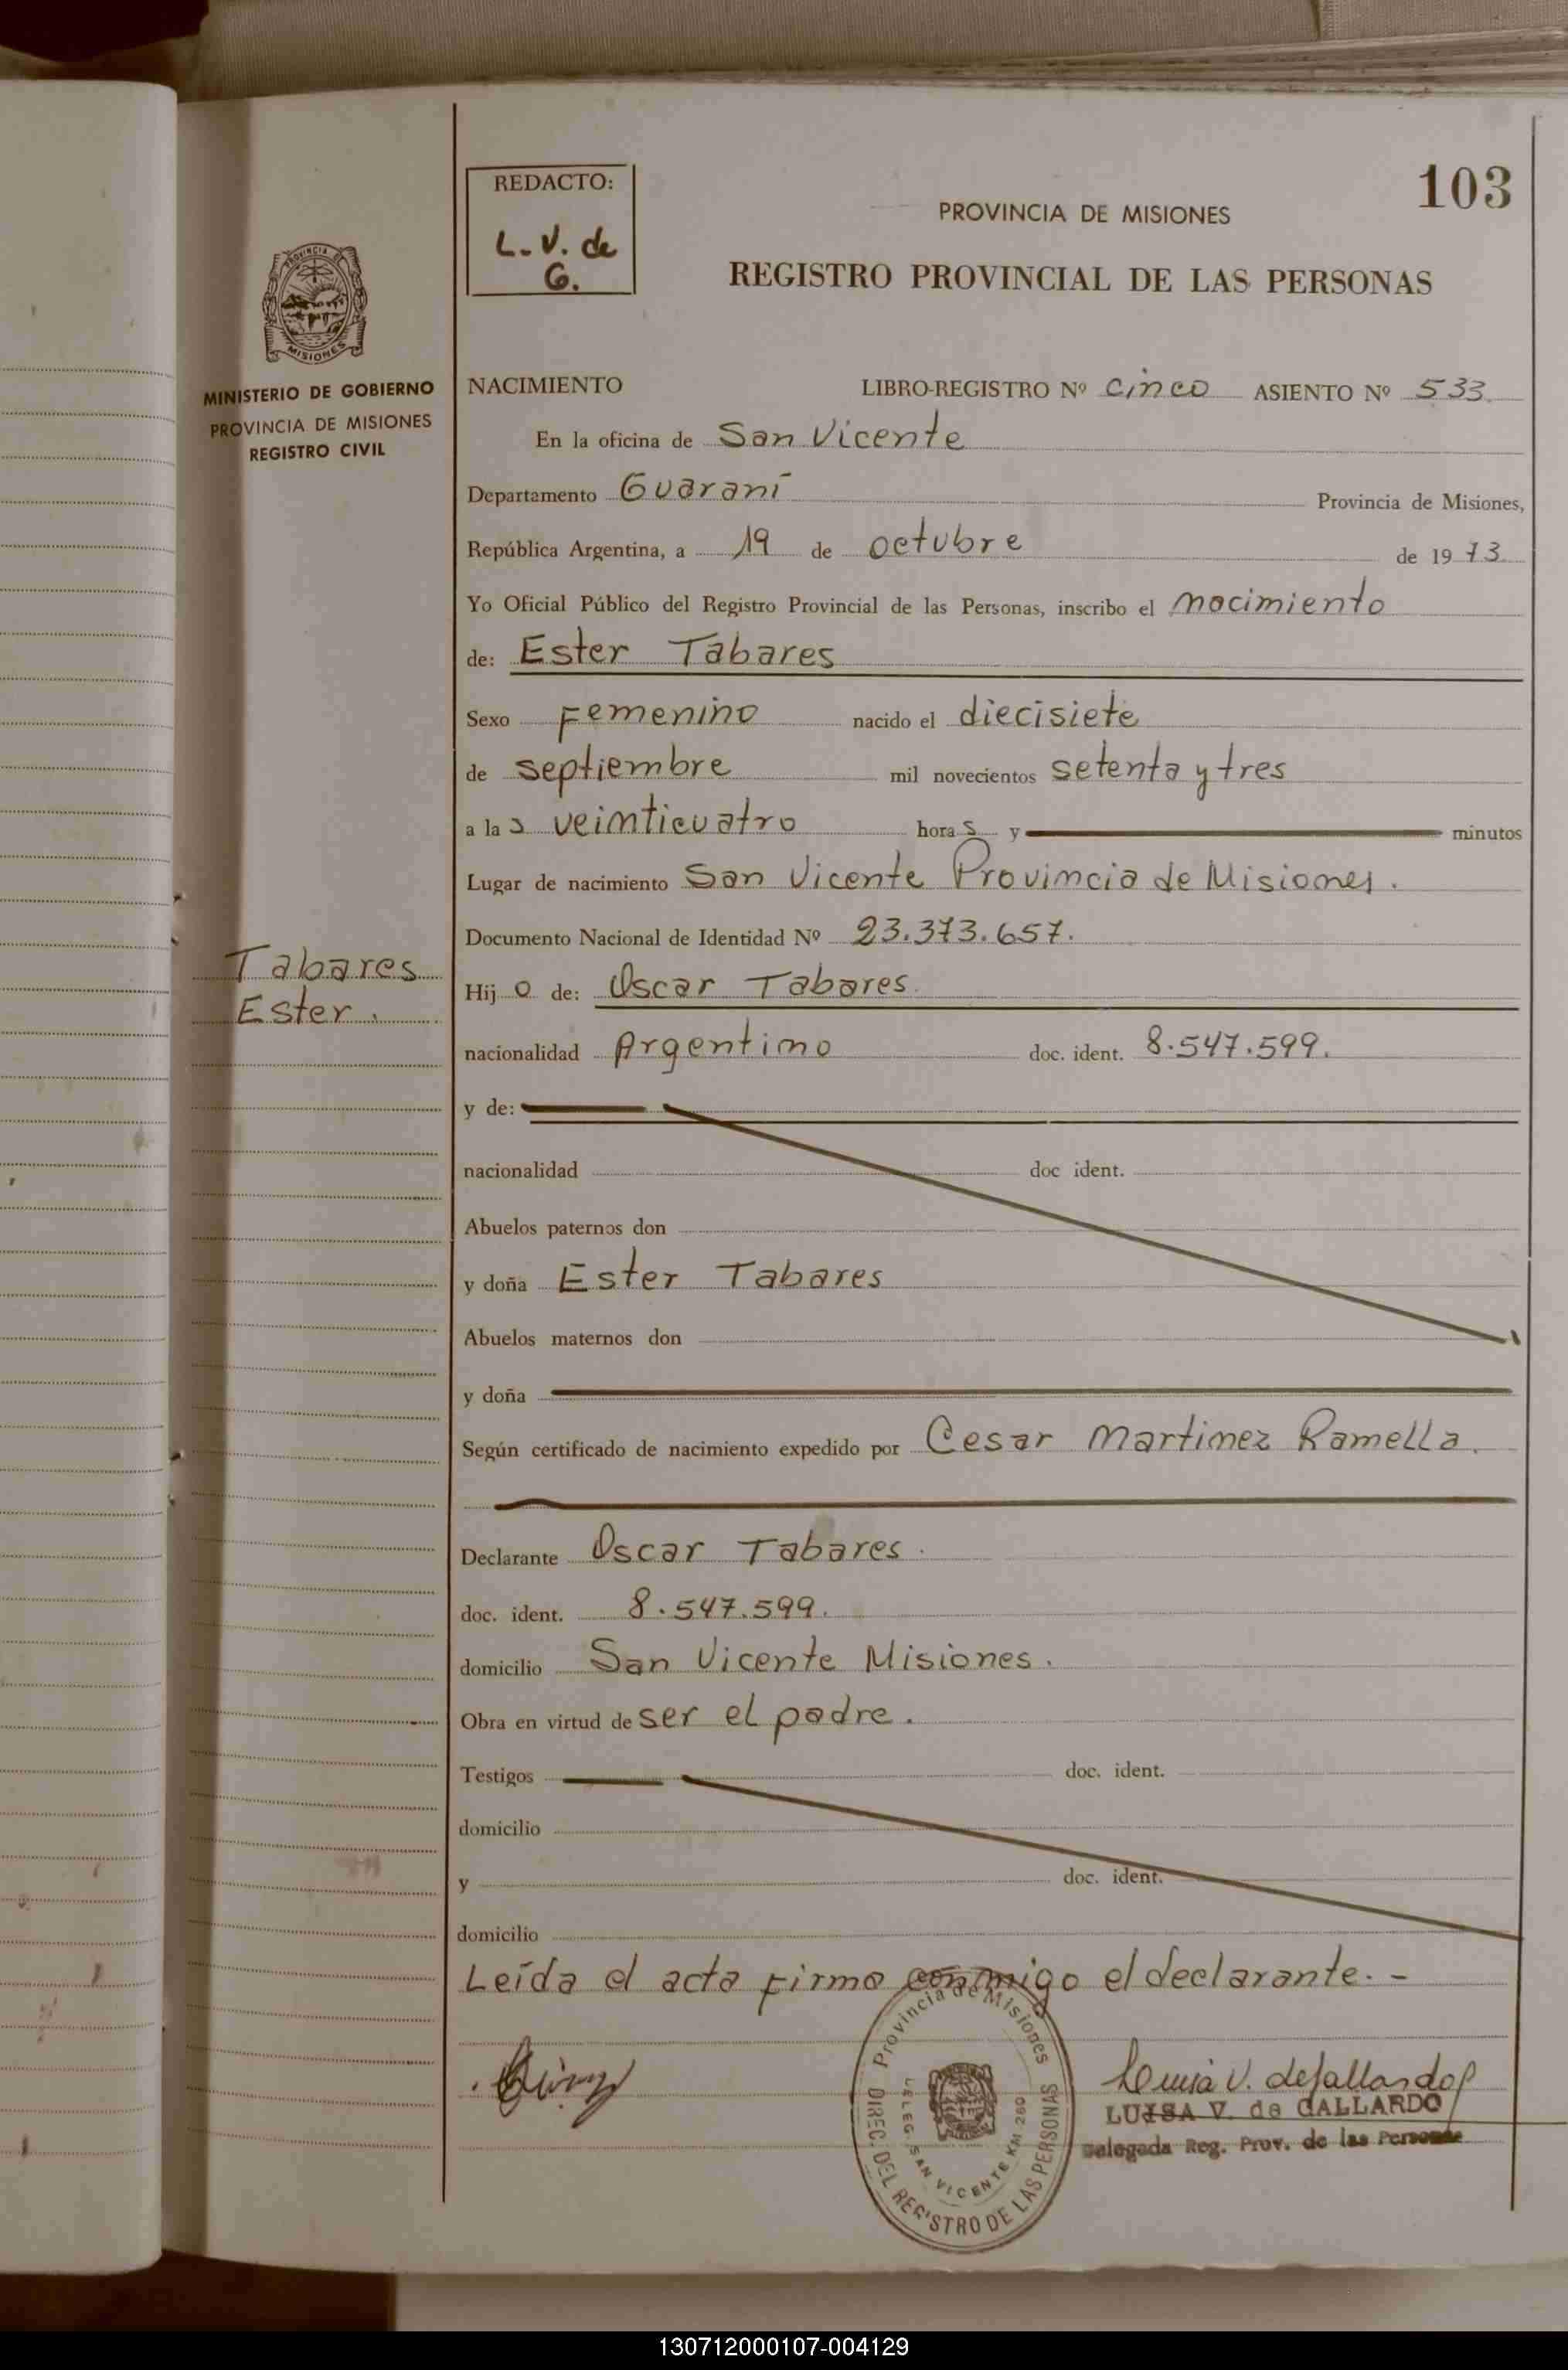 103
REDACTO:
L. V. de
G.
PROVINCIA DE MISIONES
REGISTRO PROVINCIAL DE LAS PERSONAS
PROVINCIA DE
MISIONES
MINISTERIO DE GOBIERNO
PROVINCIA DE MISIONES
REGISTRO CIVIL
NACIMIENTO LIBRO-REGISTRO Nº cinco ASIENTO Nº 533
En la oficina de San Vicente
Departamento Guaraní Provincia de Misiones,
República Argentina, a 19 de octubre de 1973
Yo Oficial Público del Registro Provincial de las Personas, inscribo el nacimiento
de: Ester Tabares
Sexo Femenino nacido el diecisiete
de septiembre mil novecientos setenta y tres
a las veinticuatro horas y minutos
Lugar de nacimiento San Vicente Provincia de Misiones.
Documento Nacional de Identidad Nº 23.373.657.
Tabares
Ester.
Hijo de: Oscar Tabares
nacionalidad Argentino doc. ident. 8.547.599.
y de:
nacionalidad doc ident.
Abuelos paternos don
y doña Ester Tabares
Abuelos maternos don
y doña
Según certificado de nacimiento expedido por Cesar Martinez Ramella.
Declarante Oscar Tabares.
doc. ident. 8.547.599.
domicilio San Vicente Misiones.
Obra en virtud de ser el padre.
Testigos doc. ident.
domicilio
y doc. ident.
domicilio
Leída el acta firmo conmigo el declarante. -
Provincia de Misiones
DIREC. DEL REGISTRO DE LAS PERSONAS
DELEG. SAN VICENTE KM 260
Luisa V. de Gallardo
LUISA V. de GALLARDO
Delegada Reg. Prov. de las Personas
130712000107-004129